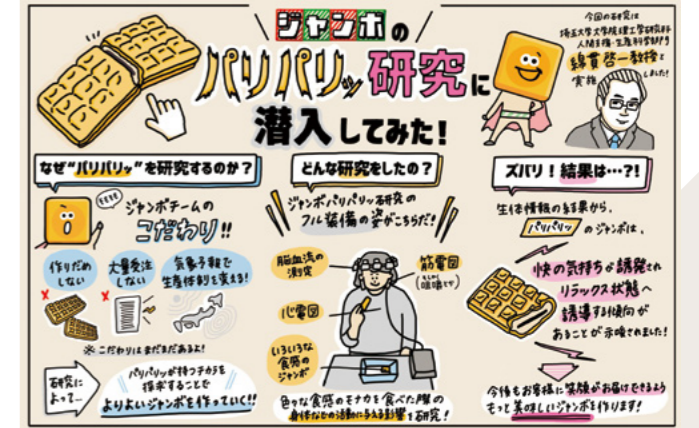 ジャンボの
パリパリッ研究に
潜入してみた!
今回の研究は
埼玉大学大学院理工学研究科
人間支援・生産科学部門
綿貫啓一教授と
実施しました!
なぜ“パリパリッ”を研究するのか?
ジャンボチームの
こだわり!!
作りだめ
しない
大量発注
しない
気象予報で
生産体制も変える!
※こだわりはまだまだあるよ!
研究に
よって…
パリパリッが持つチカラを
探求することで
よりよいジャンボを作っていく!!
どんな研究をしたの?
ジャンボパリパリッ研究の
フル装備の姿がこちらだ!
脳血流の
測定
筋電図
心電図
いろいろな
食感の
ジャンボ
色々な食感のモナカを食べた際の
身体などの活動に与える影響を研究!
ズバリ!結果は…?!
生体情報の結果から、
パリパリッのジャンボは、
快の気持ちが誘発され
リラックス状態へ
誘導する傾向が
あることが示唆されました!
今後もお客様に笑顔がお届けできるよう
もっと美味しいジャンボを作ります!